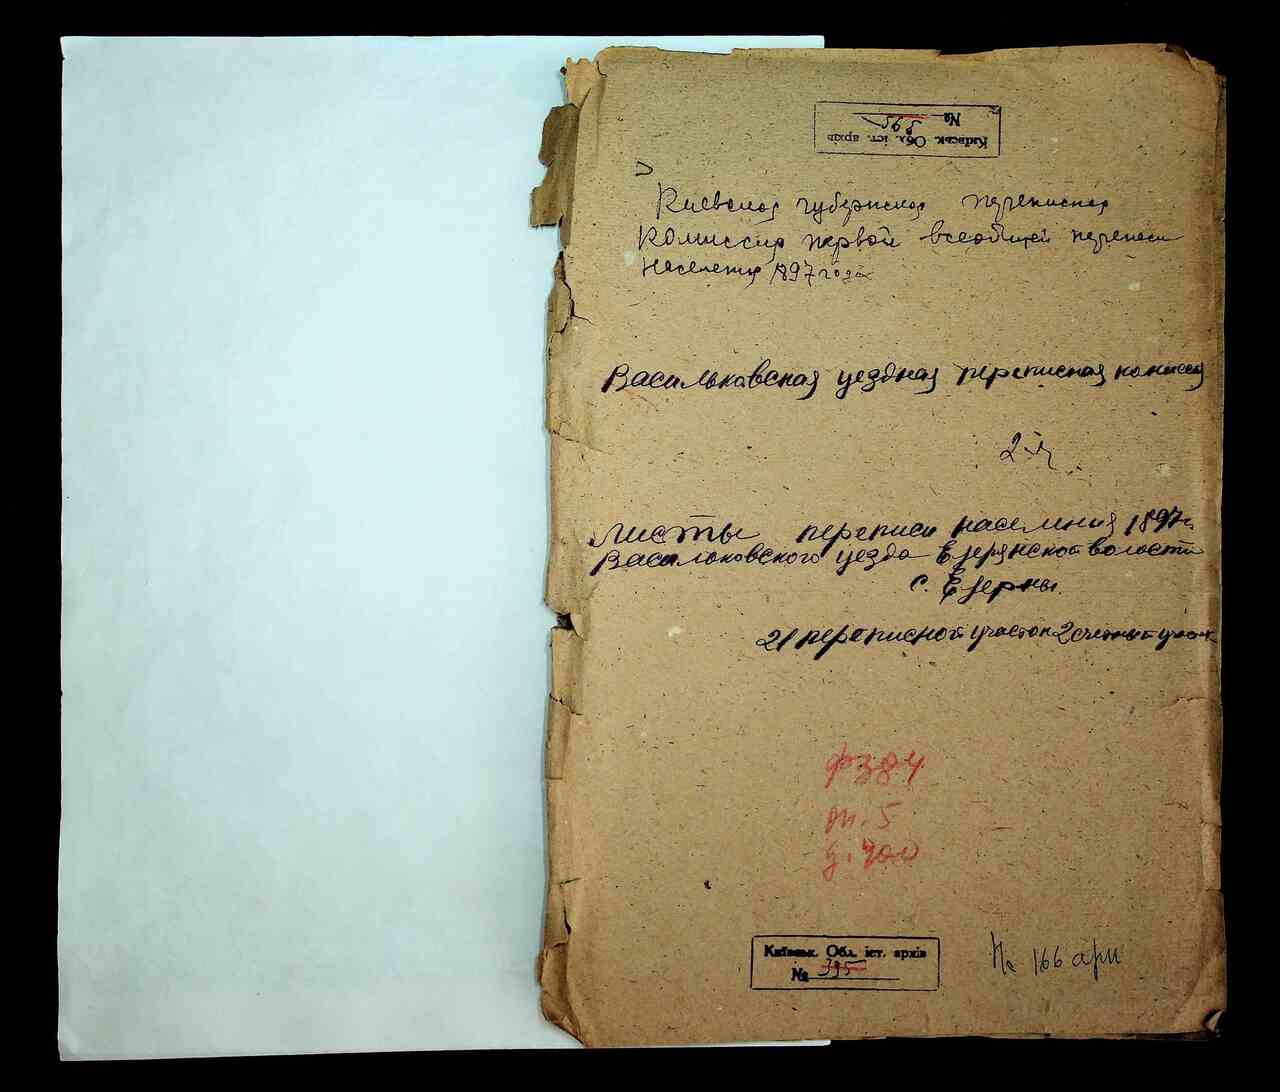 Київськ. Обл. іст. архів
№ 395
Киевская губернская переписная
комиссия первой всеобщей переписи
населения 1897 года
Васильковская уездная переписная комиссия
2-й
Листы переписи населения 1897 г.
Васильковского уезда Езерянской волости
с. Езерны.
21 переписной участок 2 счетный участок
ф 384
т. 5
Київськ. Обл. іст. архів
№ 395
На 166 арк